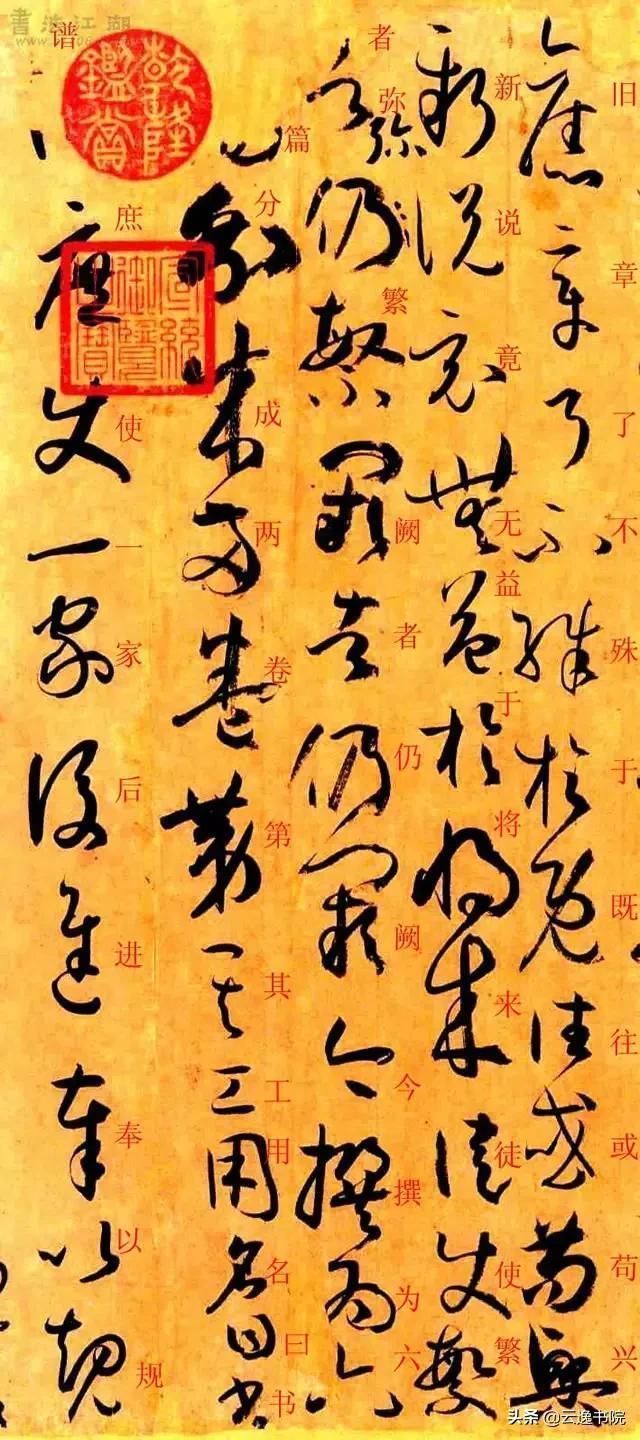 書法江湖
旧章了不殊于既往或苟兴
新说竟无益于将来徒使繁
者弥仍繁阙者仍阙今撰为六
篇分成两卷第其工用名曰书
谱庶使一家后进奉以规
乾隆鑑賞
宣統御覽之寶
头条 @云逸书院